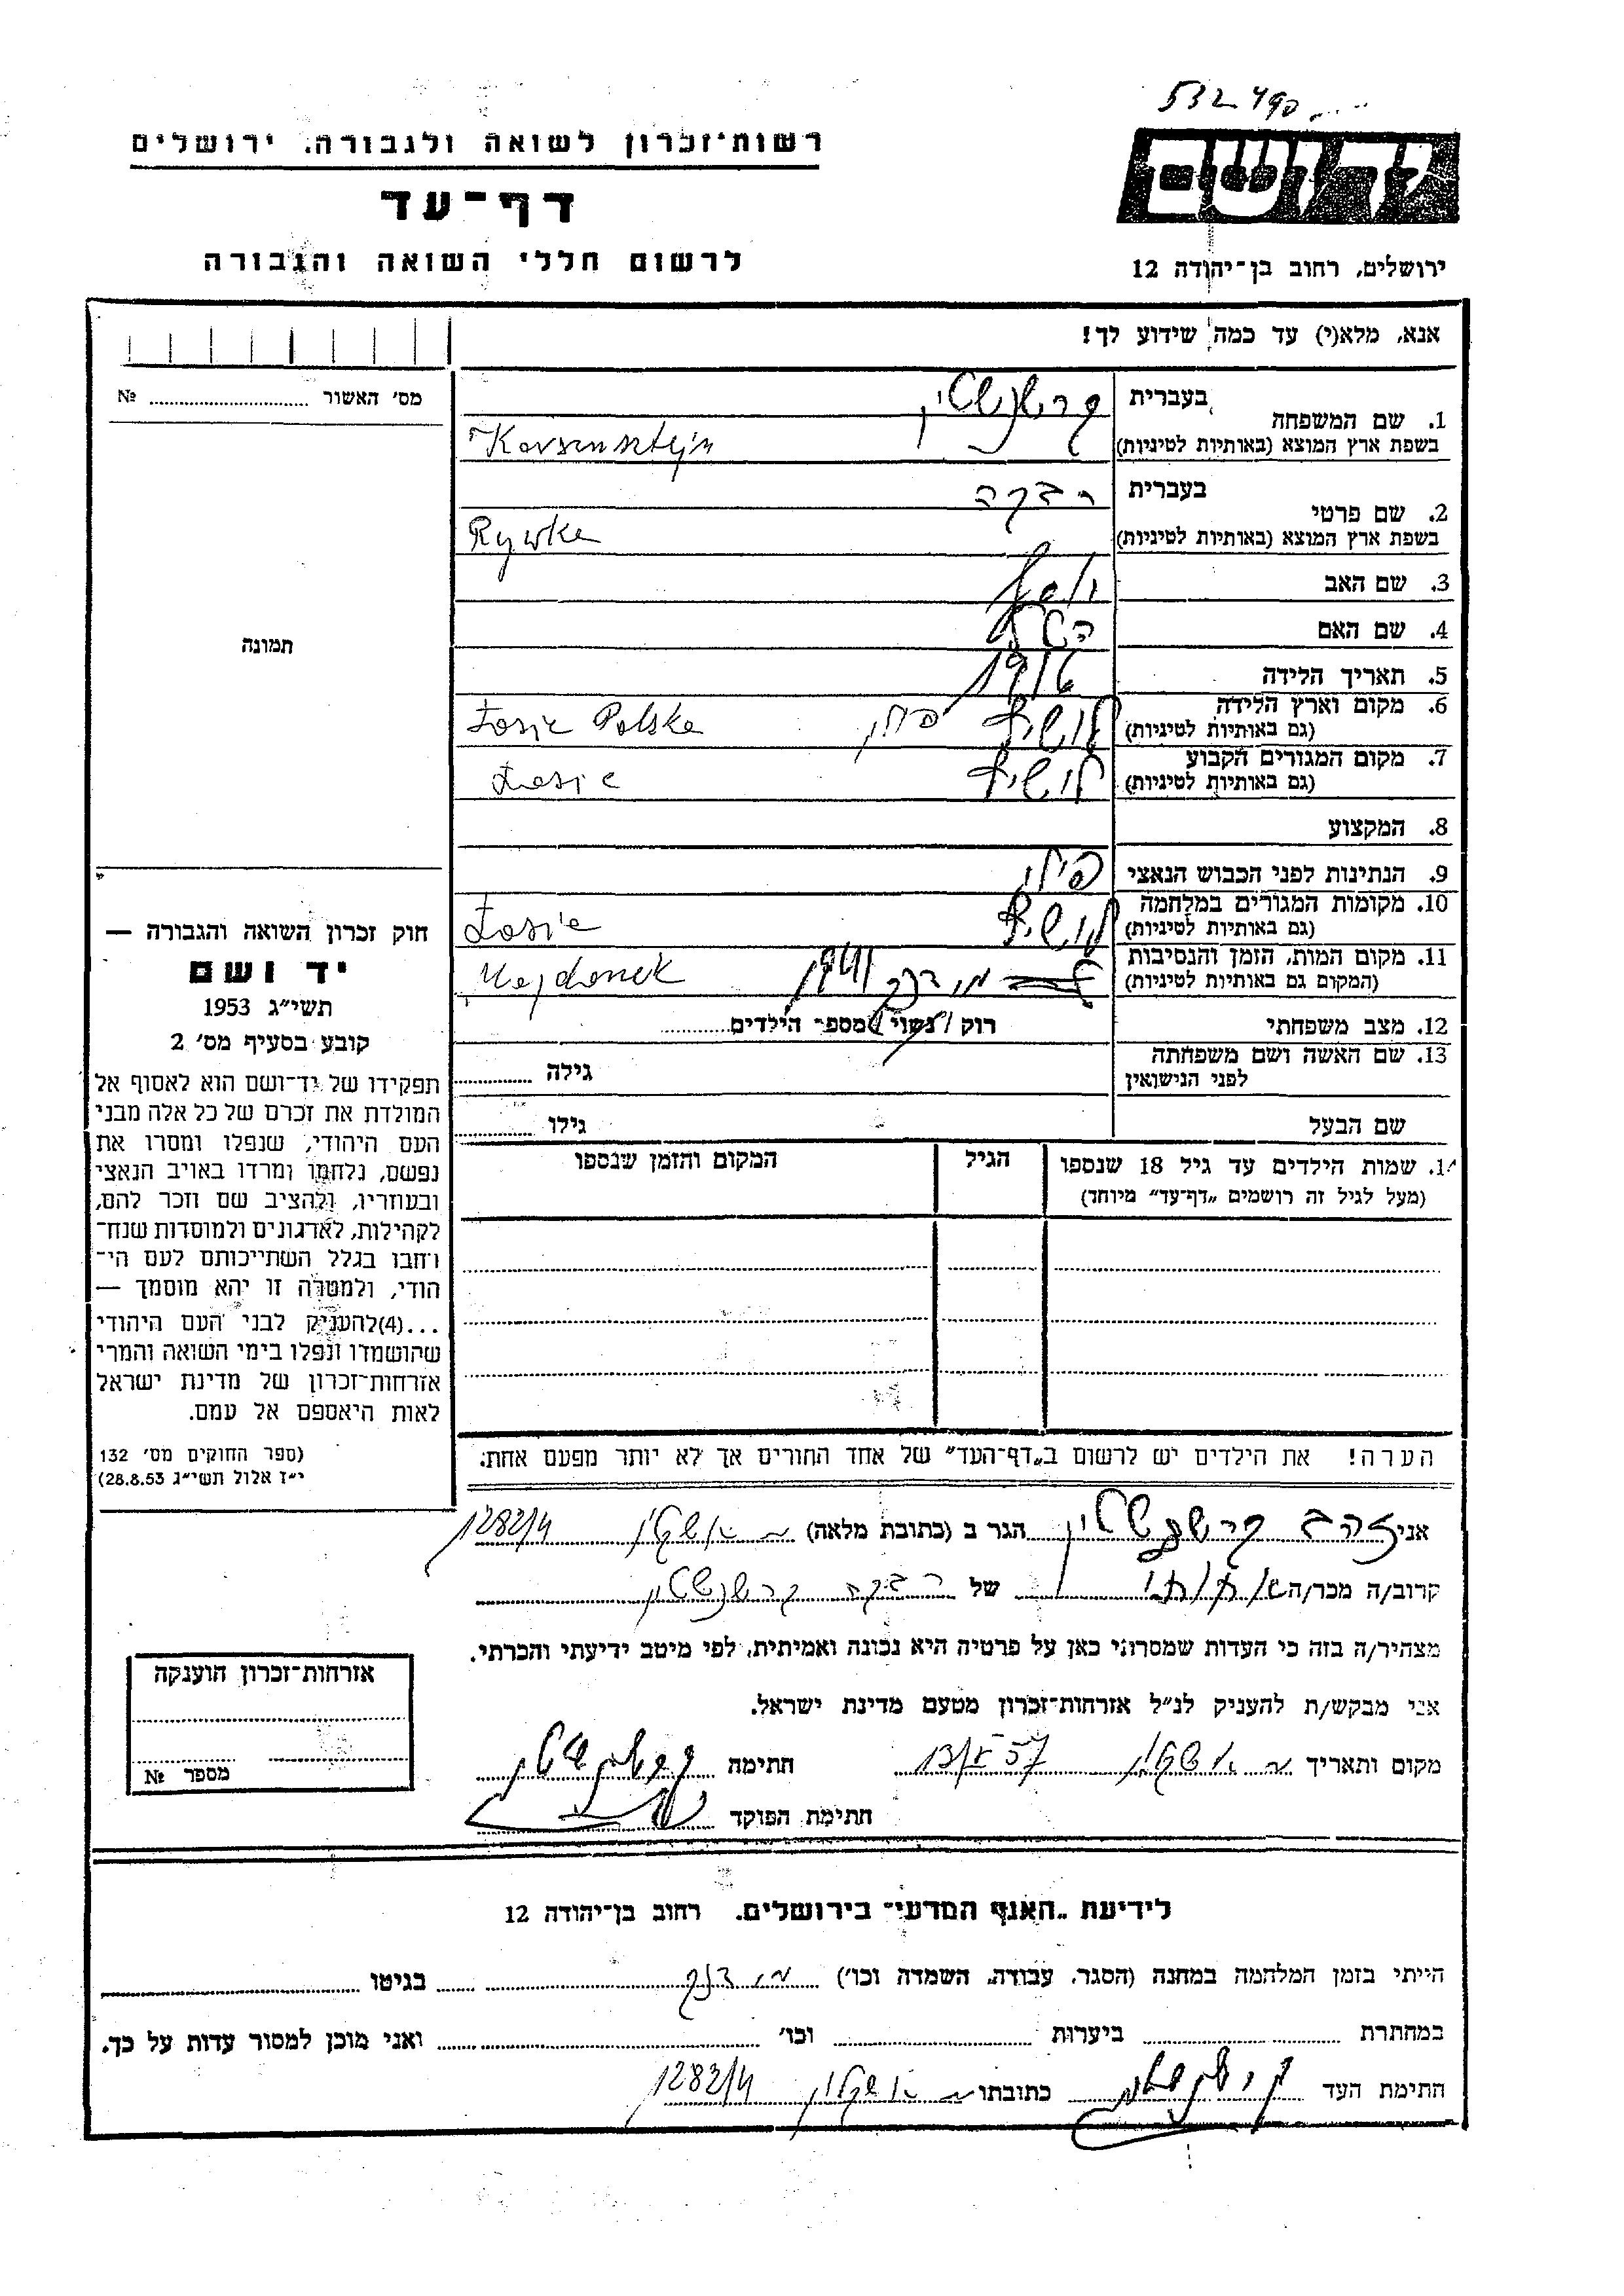 532490
רשות־זכרון לשואה ולגבורה, ירושלים
דף־עד
לרשום חללי השואה והגבורה
יד ושם
ירושלים, רחוב בן־יהודה 12
אנא, מלא(י) עד כמה שידוע לך!
מס׳ האשור № 
1. שם המשפחה בעברית קרשנשטין
בשפת ארץ המוצא (באותיות לטיניות) Korsensztejn
2. שם פרטי בעברית רבקה
בשפת ארץ המוצא (באותיות לטיניות) Rywka
3. שם האב יוסף
4. שם האם
5. תאריך הלידה 1916
6. מקום וארץ הלידה (גם באותיות לטיניות) לושיץ פולין Łosic Polska
7. מקום המגורים הקבוע (גם באותיות לטיניות) לושיץ Łosic
8. המקצוע
9. הנתינות לפני הכבוש הנאצי פולין
10. מקומות המגורים במלחמה (גם באותיות לטיניות) לושיץ Łosic
11. מקום המות, הזמן והנסיבות (המקום גם באותיות לטיניות) מידנק 1941 Majdanek
12. מצב משפחתי רוק / נשוי / מספר הילדים
13. שם האשה ושם משפחתה לפני הנישואין גילה
שם הבעל גילו
14. שמות הילדים עד גיל 18 שנספו (מעל לגיל זה רושמים „דף־עד״ מיוחד) הגיל המקום והזמן שנספו
תמונה
חוק זכרון השואה והגבורה —
יד ושם
תשי״ג 1953
קובע בסעיף מס׳ 2
תפקידו של יד־ושם הוא לאסוף אל
המולדת את זכרם של כל אלה מבני
העם היהודי, שנפלו ומסרו את
נפשם, נלחמו ומרדו באויב הנאצי
ובעוזריו, ולהציב שם וזכר להם,
לקהילות, לארגונים ולמוסדות שנח־
רחבו בגלל השתייכותם לעם הי־
הודי, ולמטרה זו יהא מוסמך —
...(4)להעניק לבני העם היהודי
שהושמדו ונפלו בימי השואה והמרי
אזרחות־זכרון של מדינת ישראל
לאות היאספם אל עמם.
(ספר החוקים מס׳ 132
י״ז אלול תשי״ג 28.8.53)
הערה! את הילדים יש לרשום ב„דף־העד״ של אחד ההורים אך לא יותר מפעם אחת.
אני זהבה קרשנשטין הגר ב (כתובת מלאה) אשקלון 1282/4
קרוב/ה מכר/ה אחותי של רבקה קרשנשטין
מצהיר/ה בזה כי העדות שמסרתי כאן על פרטיה היא נכונה ואמיתית, לפי מיטב ידיעתי והכרתי.
אני מבקש/ת להעניק לנ״ל אזרחות־זכרון מטעם מדינת ישראל.
מקום ותאריך אשקלון 57 חתימה
חתימת הפוקד
אזרחות־זכרון הוענקה
מספר №
לידיעת „האגף המדעי״ בירושלים. רחוב בן־יהודה 12
הייתי בזמן המלחמה במחנה (הסגר, עבודה, השמדה וכו׳) מידנק בגיטו
במחתרת ביערות וכו׳ ואני מוכן למסור עדות על כך.
חתימת העד כתובתו אשקלון 1282/4